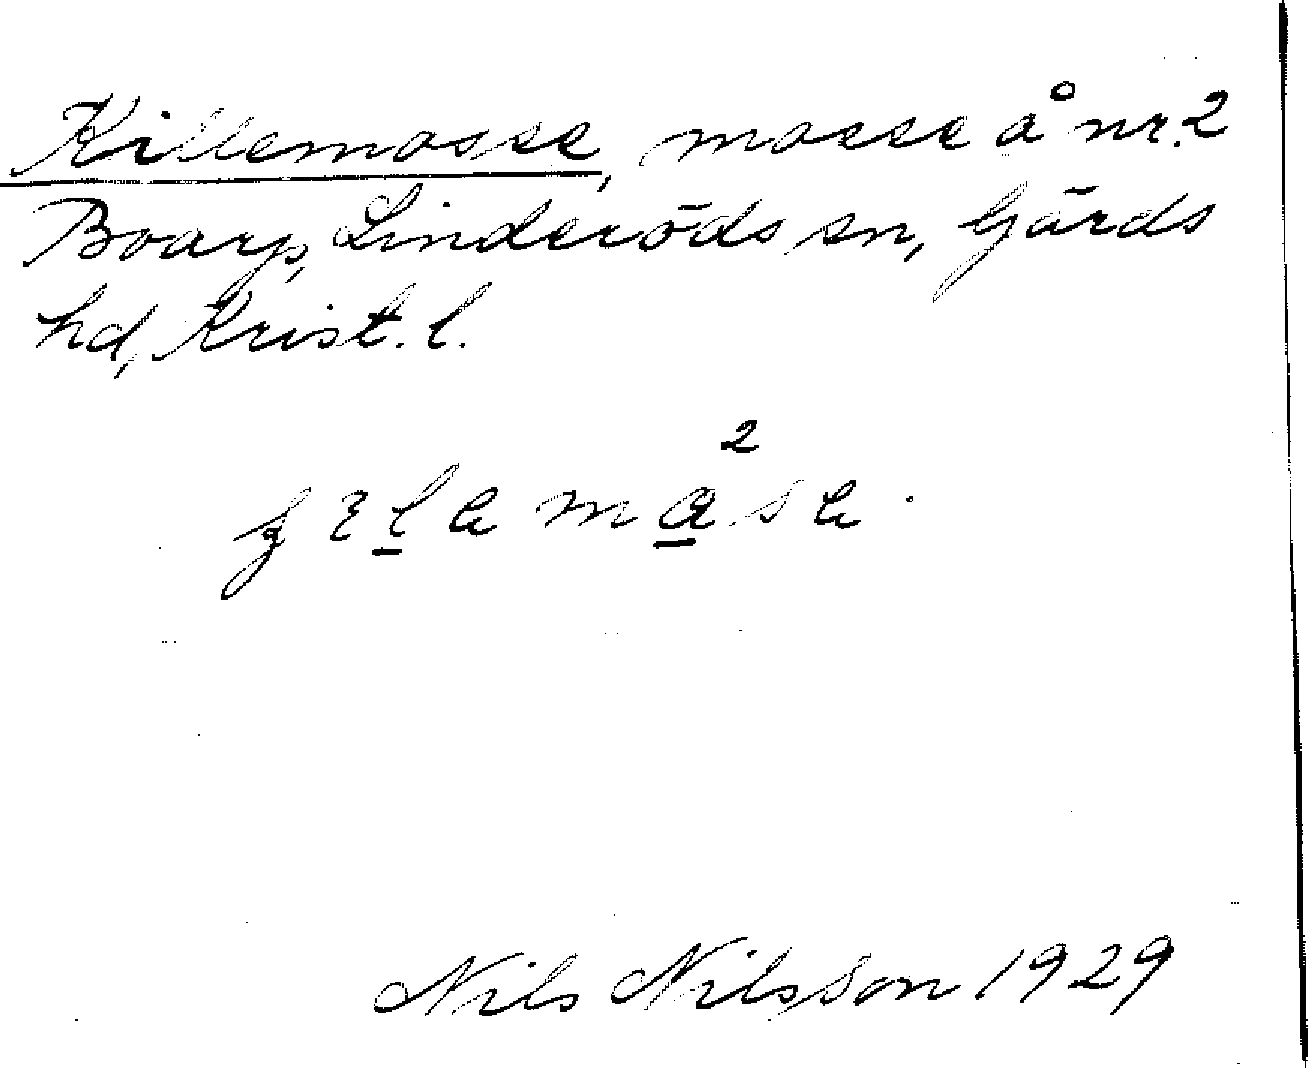 Killemosse, mosse å nr. 2
Boarp, Linderöds sn, Gärds
hd, Krist. l.
Nils Nilsson 1929